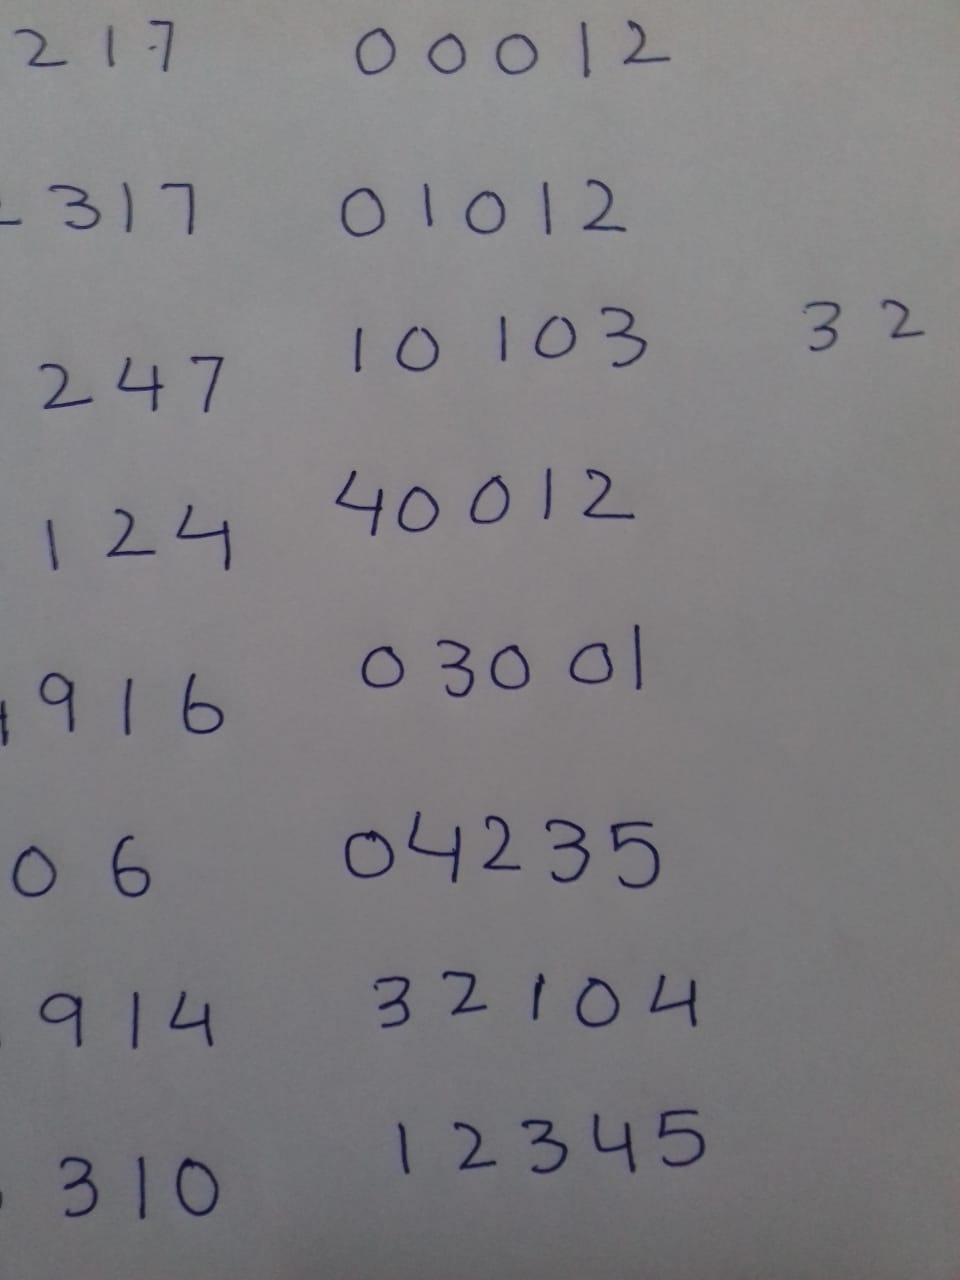 217 00012
317 01012
247 10103 32
124 40012
916 03001
06 04235
914 32104
310 12345